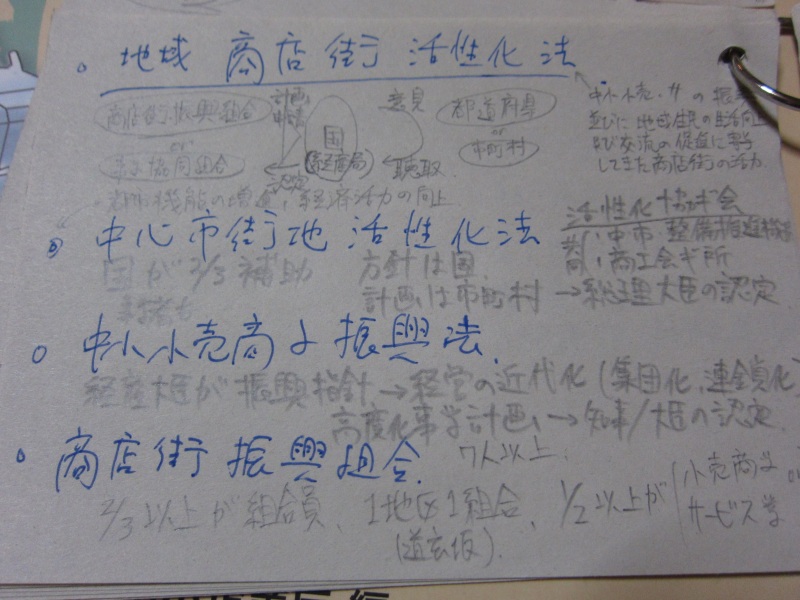 地域 商店街 活性化法
商店街振興組合
or
協同組合
計画
申請
認定
国
(経産局)
意見
聴取
都道府県
or
市町村
中小小売・サの振
並びに地域住民の生活向上
及び交流の促進に寄与
してきた商店街の活力
機能の増進、経済活力の向上
中心市街地 活性化法
国が2/3補助 方針は国
計画は市町村→総理大臣の認定
活性化協ギ会
・中市・整備推進
・商工会ギ所
中小小売商よ振興法
経産大臣が振興指針→経営の近代化(集団化、連鎖化
高度化事業計画→知事/大臣の認定
商店街振興組合 7人以上
2/3以上が組合員、1地区1組合、1/2以上が 小売商よ or
サービス業
(道玄坂)